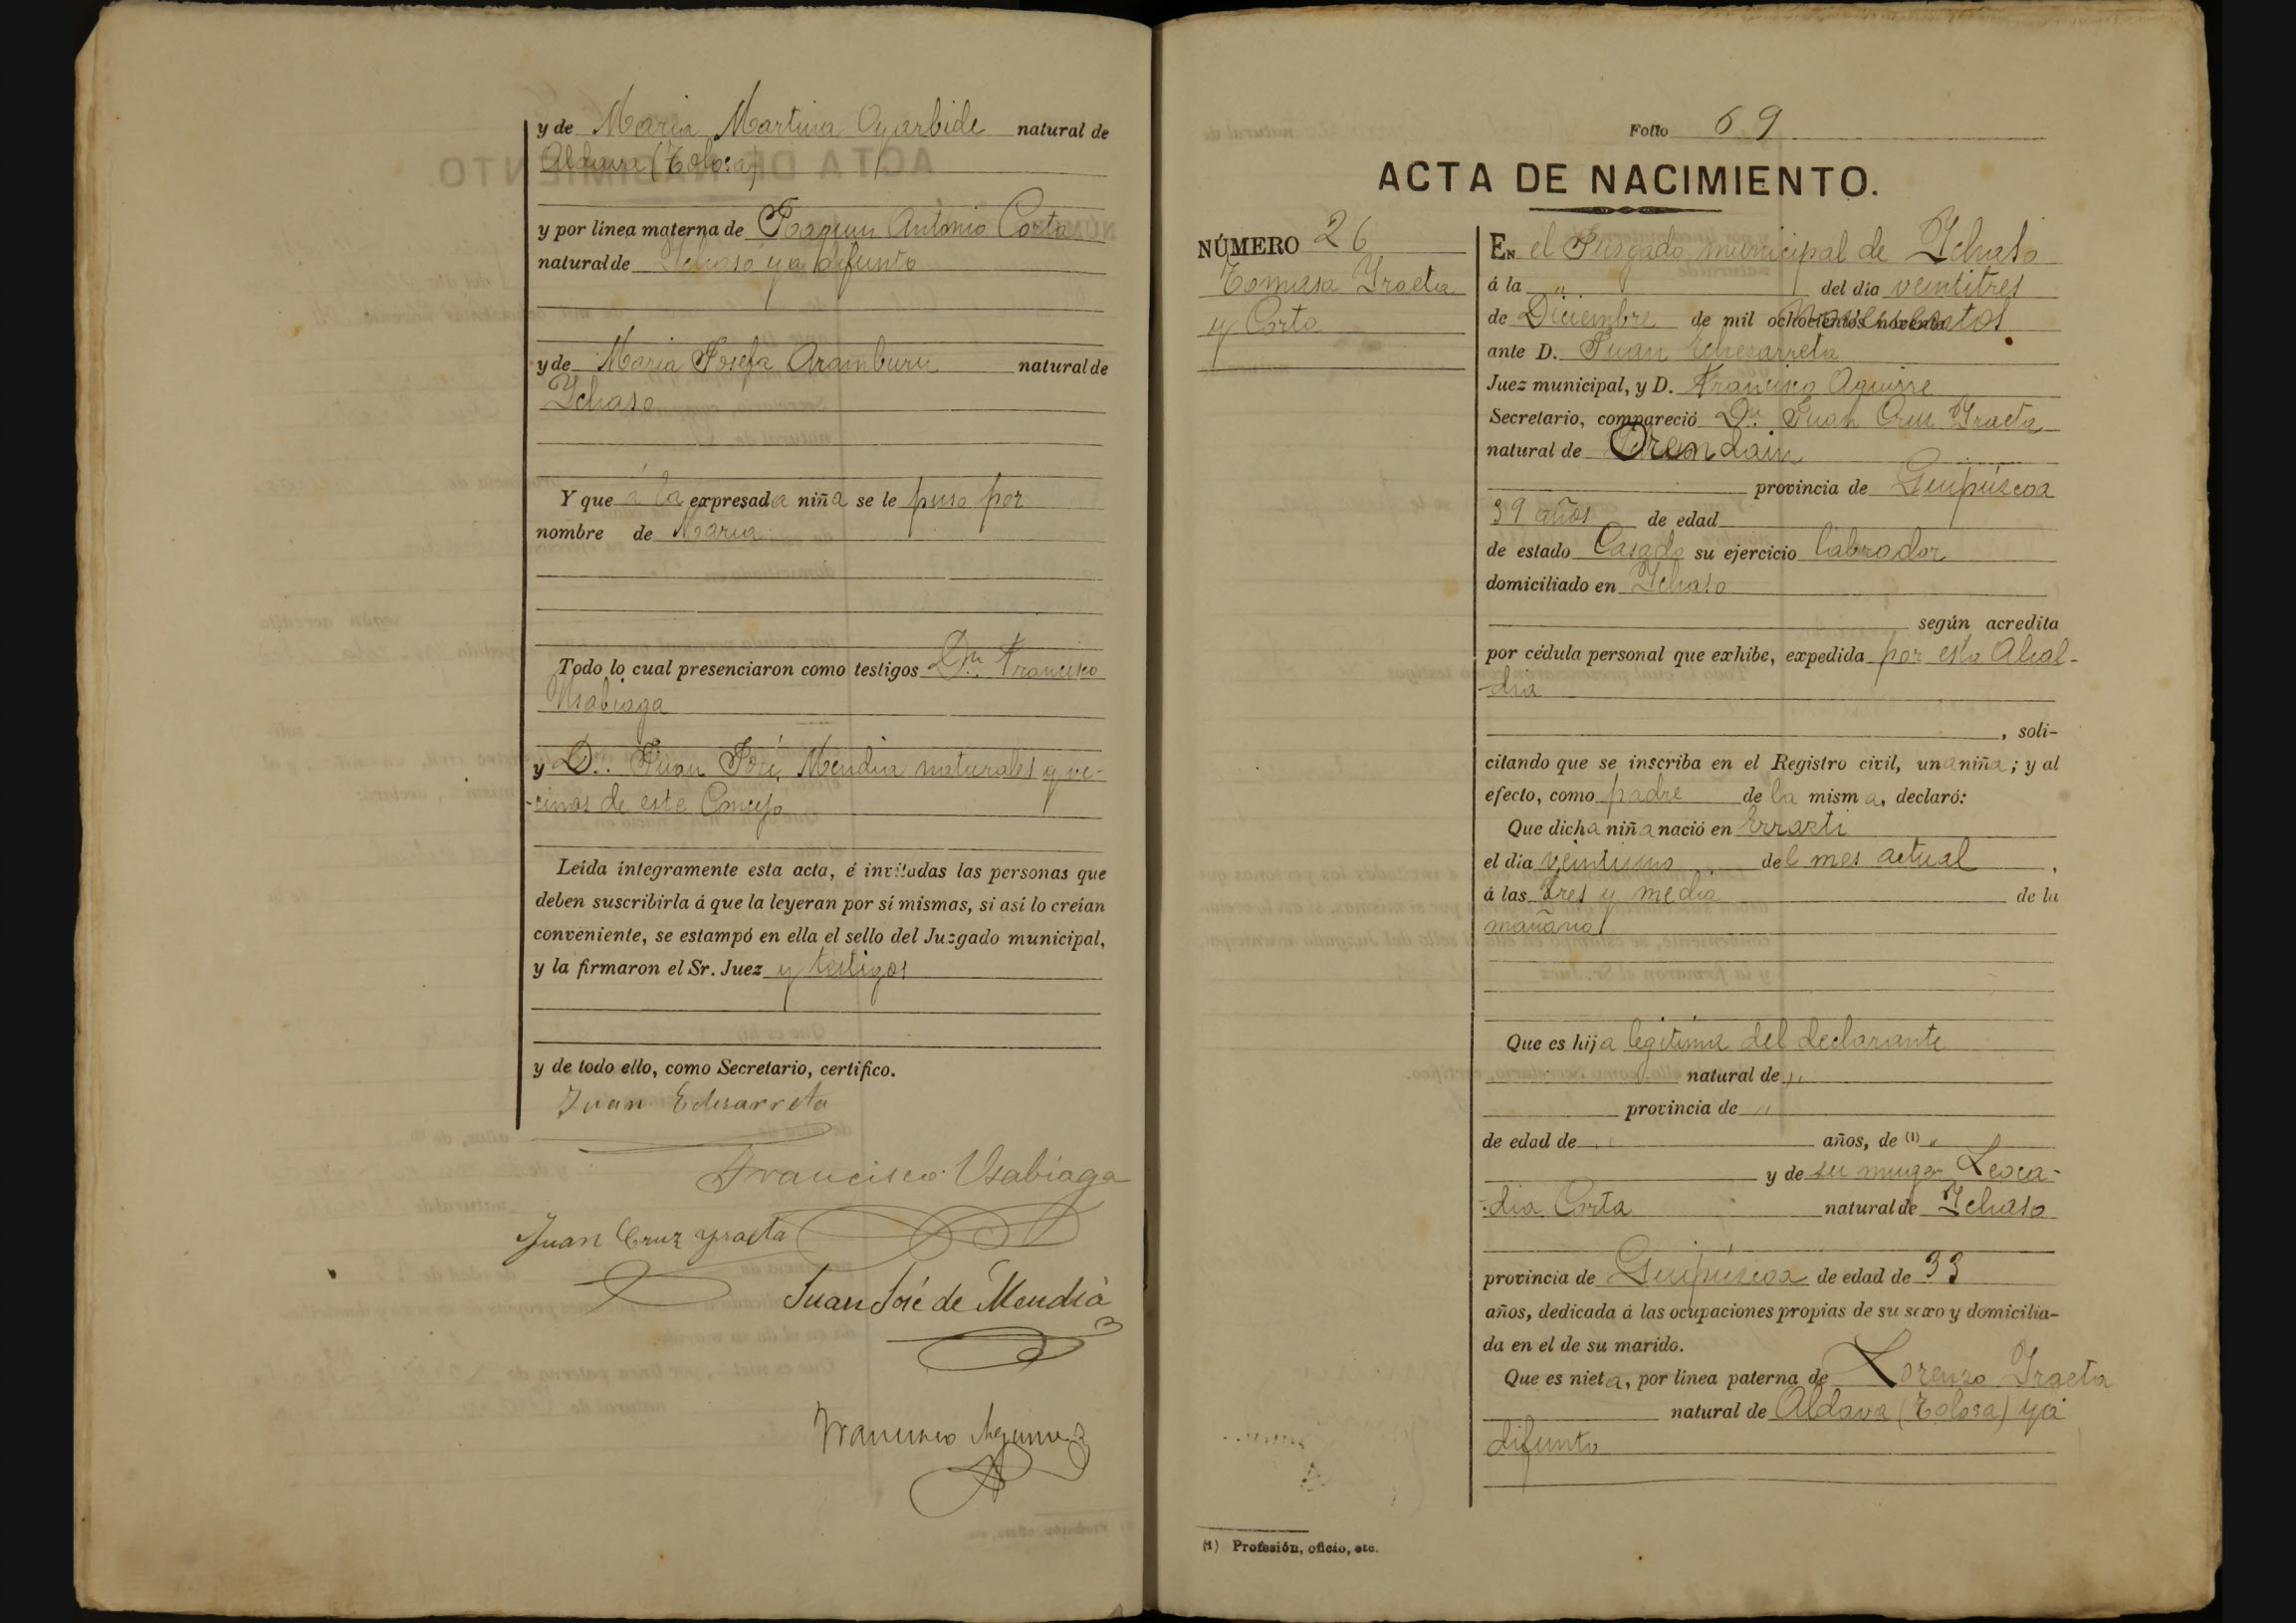 y de Maria Martina Oyarbide natural de
Aldava (Tolosa)
y por línea materna de Joaquin Antonio Corta
natural de Ychaso ya difunto
y de Maria Josefa Aramburu natural de
Ychaso
Y que á la expresada niña se le puso por
nombre de Maria
Todo lo cual presenciaron como testigos Dn. Francisco
Usabiaga
y D. Juan José Mendia naturales y ve-
-cinos de este Concejo
Leída íntegramente esta acta, é invitadas las personas que
deben suscribirla á que la leyeran por sí mismas, si así lo creían
conveniente, se estampó en ella el sello del Juzgado municipal,
y la firmaron el Sr. Juez y testigos
y de todo ello, como Secretario, certifico.
Juan Echezarreta
Francisco Usabiaga
Juan Cruz Yraeta
Juan José de Mendia
Francisco Aguirre
Folio 69
ACTA DE NACIMIENTO.
NÚMERO 26
Tomasa Yraeta
y Corta
EN el Juzgado municipal de Ychaso
á la " del día veintitres
de Diciembre de mil novecientos
ante D. Juan Echezarreta
Juez municipal, y D. Francisco Aguirre
Secretario, compareció Dn. Juan Cruz Yraeta
natural de Orendain
provincia de Guipúzcoa
39 años de edad
de estado Casado su ejercicio labrador
domiciliado en Ychaso
según acredita
por cédula personal que exhibe, expedida por esta Alcal-
-dia
, soli-
citando que se inscriba en el Registro civil, una niña; y al
efecto, como padre de la misma, declaró:
Que dicha niña nació en Errazti
el día veintiuno del mes actual,
á las tres y media de la
mañana
Que es hija legitima del declarante
natural de "
provincia de "
de edad de " años, de (1) "
y de su muger Leoca-
-dia Corta natural de Ychaso
provincia de Guipúzcoa de edad de 33
años, dedicada á las ocupaciones propias de su sexo y domicilia-
da en el de su marido.
Que es nieta, por línea paterna de Lorenzo Yraeta
natural de Aldava (Tolosa) ya
difunto
(1) Profesión, oficio, etc.